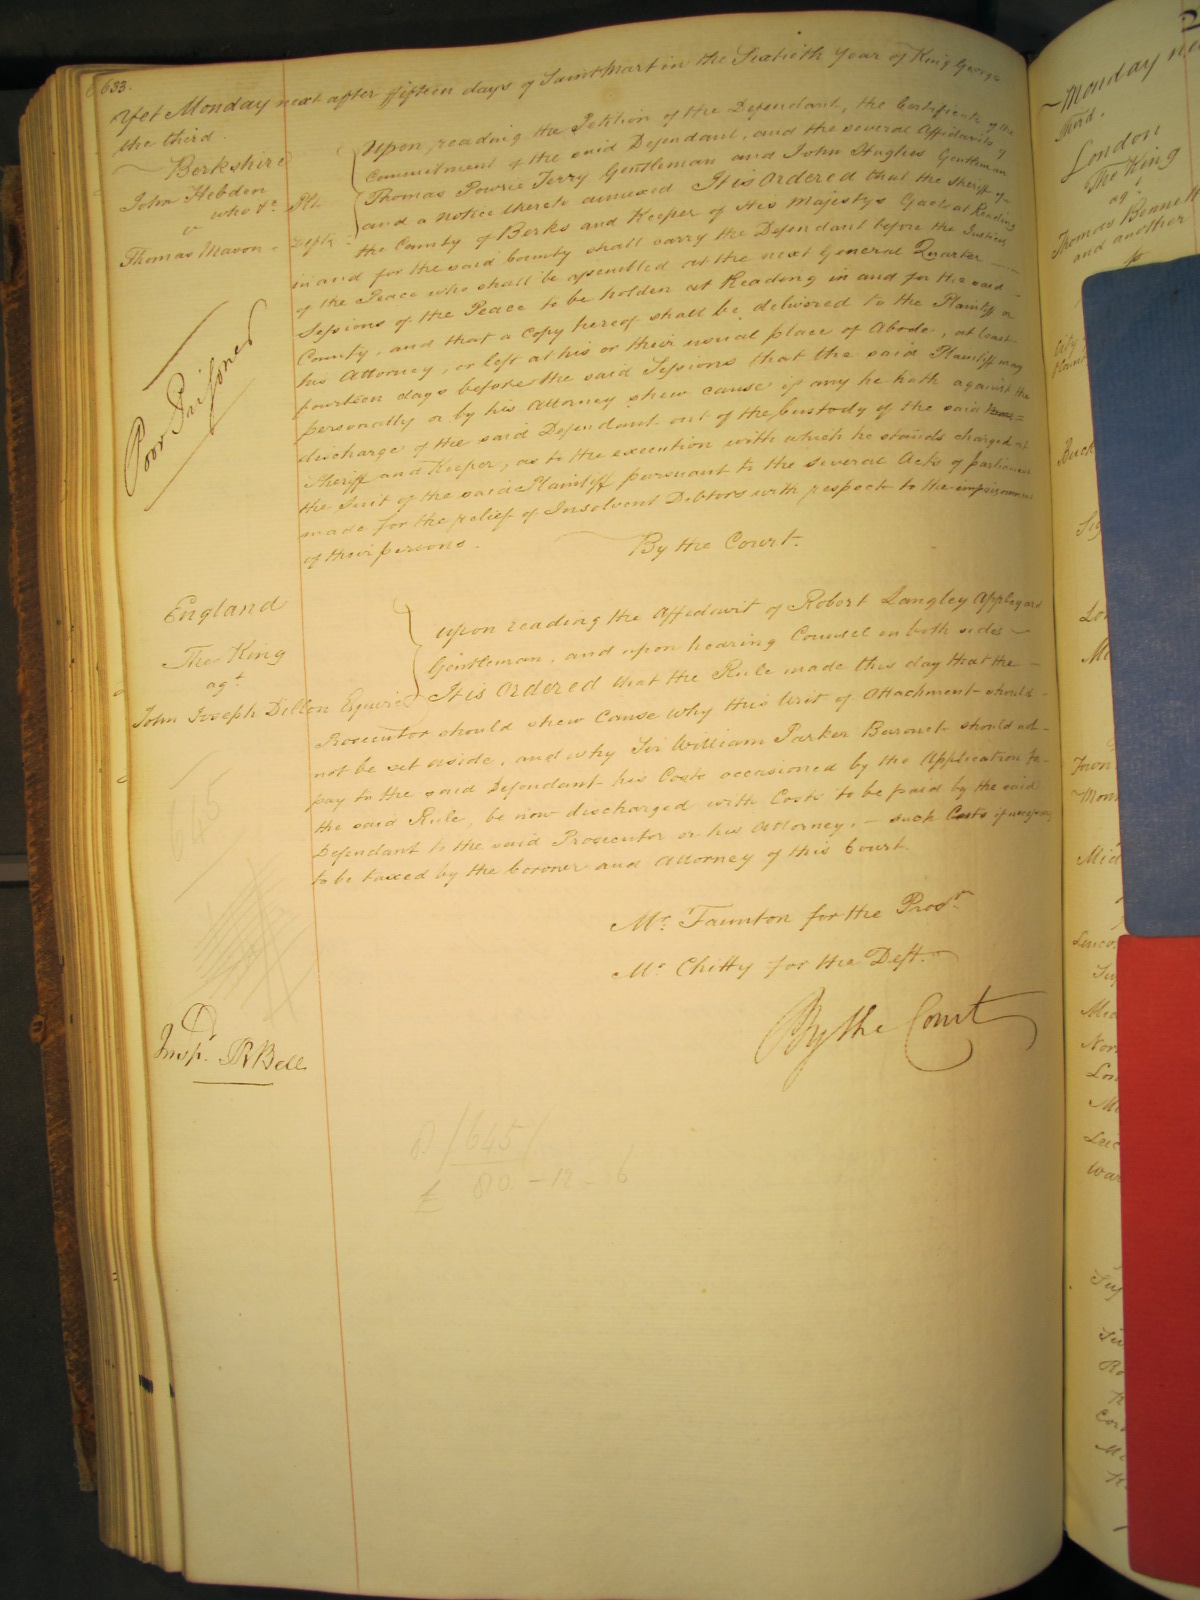 633.
Yet Monday next after fifteen days of Saint Martin in the Sixtieth Year of King George
the third.
Berkshire
John Hebden Plt
who &c
v
Thomas Mason Deft
Poor Prisoner
Upon reading the Petition of the Defendant, the Certificate of the
Commitment of the said Defendant, and the several Affidavits of
Thomas Powrie Terry Gentleman and John Hughes Gentleman
and a Notice thereto annexed It is Ordered that the Sheriff of
the County of Berks and Keeper of His Majestys Gaol at Reading
in and for the said County shall carry the Defendant before the Justices
of the Peace who shall be assembled at the next General Quarter
Sessions of the Peace to be holden at Reading in and for the said
County, and that a Copy hereof shall be delivered to the Plaintiff or
his Attorney, or left at his or their usual place of Abode, at least
fourteen days before the said Sessions that the said Plaintiff may
personally or by his Attorney shew cause if any he hath against the
discharge of the said Defendant out of the Custody of the said
Sheriff and Keeper, as to the execution with which he stands charged at
the Suit of the said Plaintiff pursuant to the several Acts of parliament
made for the relief of Insolvent Debtors with respect to the imprisonment
of their persons.
By the Court.
England
The King
agt
John Joseph Dillon Esquire
Upon reading the Affidavit of Robert Langley Appleyard
Gentleman, and upon hearing Counsel on both sides
It is Ordered that the Rule made this day that the
Prosecutor should shew Cause why this Writ of Attachment should
not be set aside, and why Sir William Parker Baronet should not
pay to the said Defendant his Costs occasioned by the Application for
the said Rule, be now discharged with Costs to be paid by the said
Defendant to the said Prosecutor or his Attorney, such Costs if necessary
to be taxed by the Coroner and Attorney of this Court.
Mr. Taunton for the Prosr.
Mr. Chitty for the Deft.
By the Court
645
Insp. R Bell
645
£ 80 - 12 - 6
Monday
third.
London
The King
agt
Thomas Bennett
and another